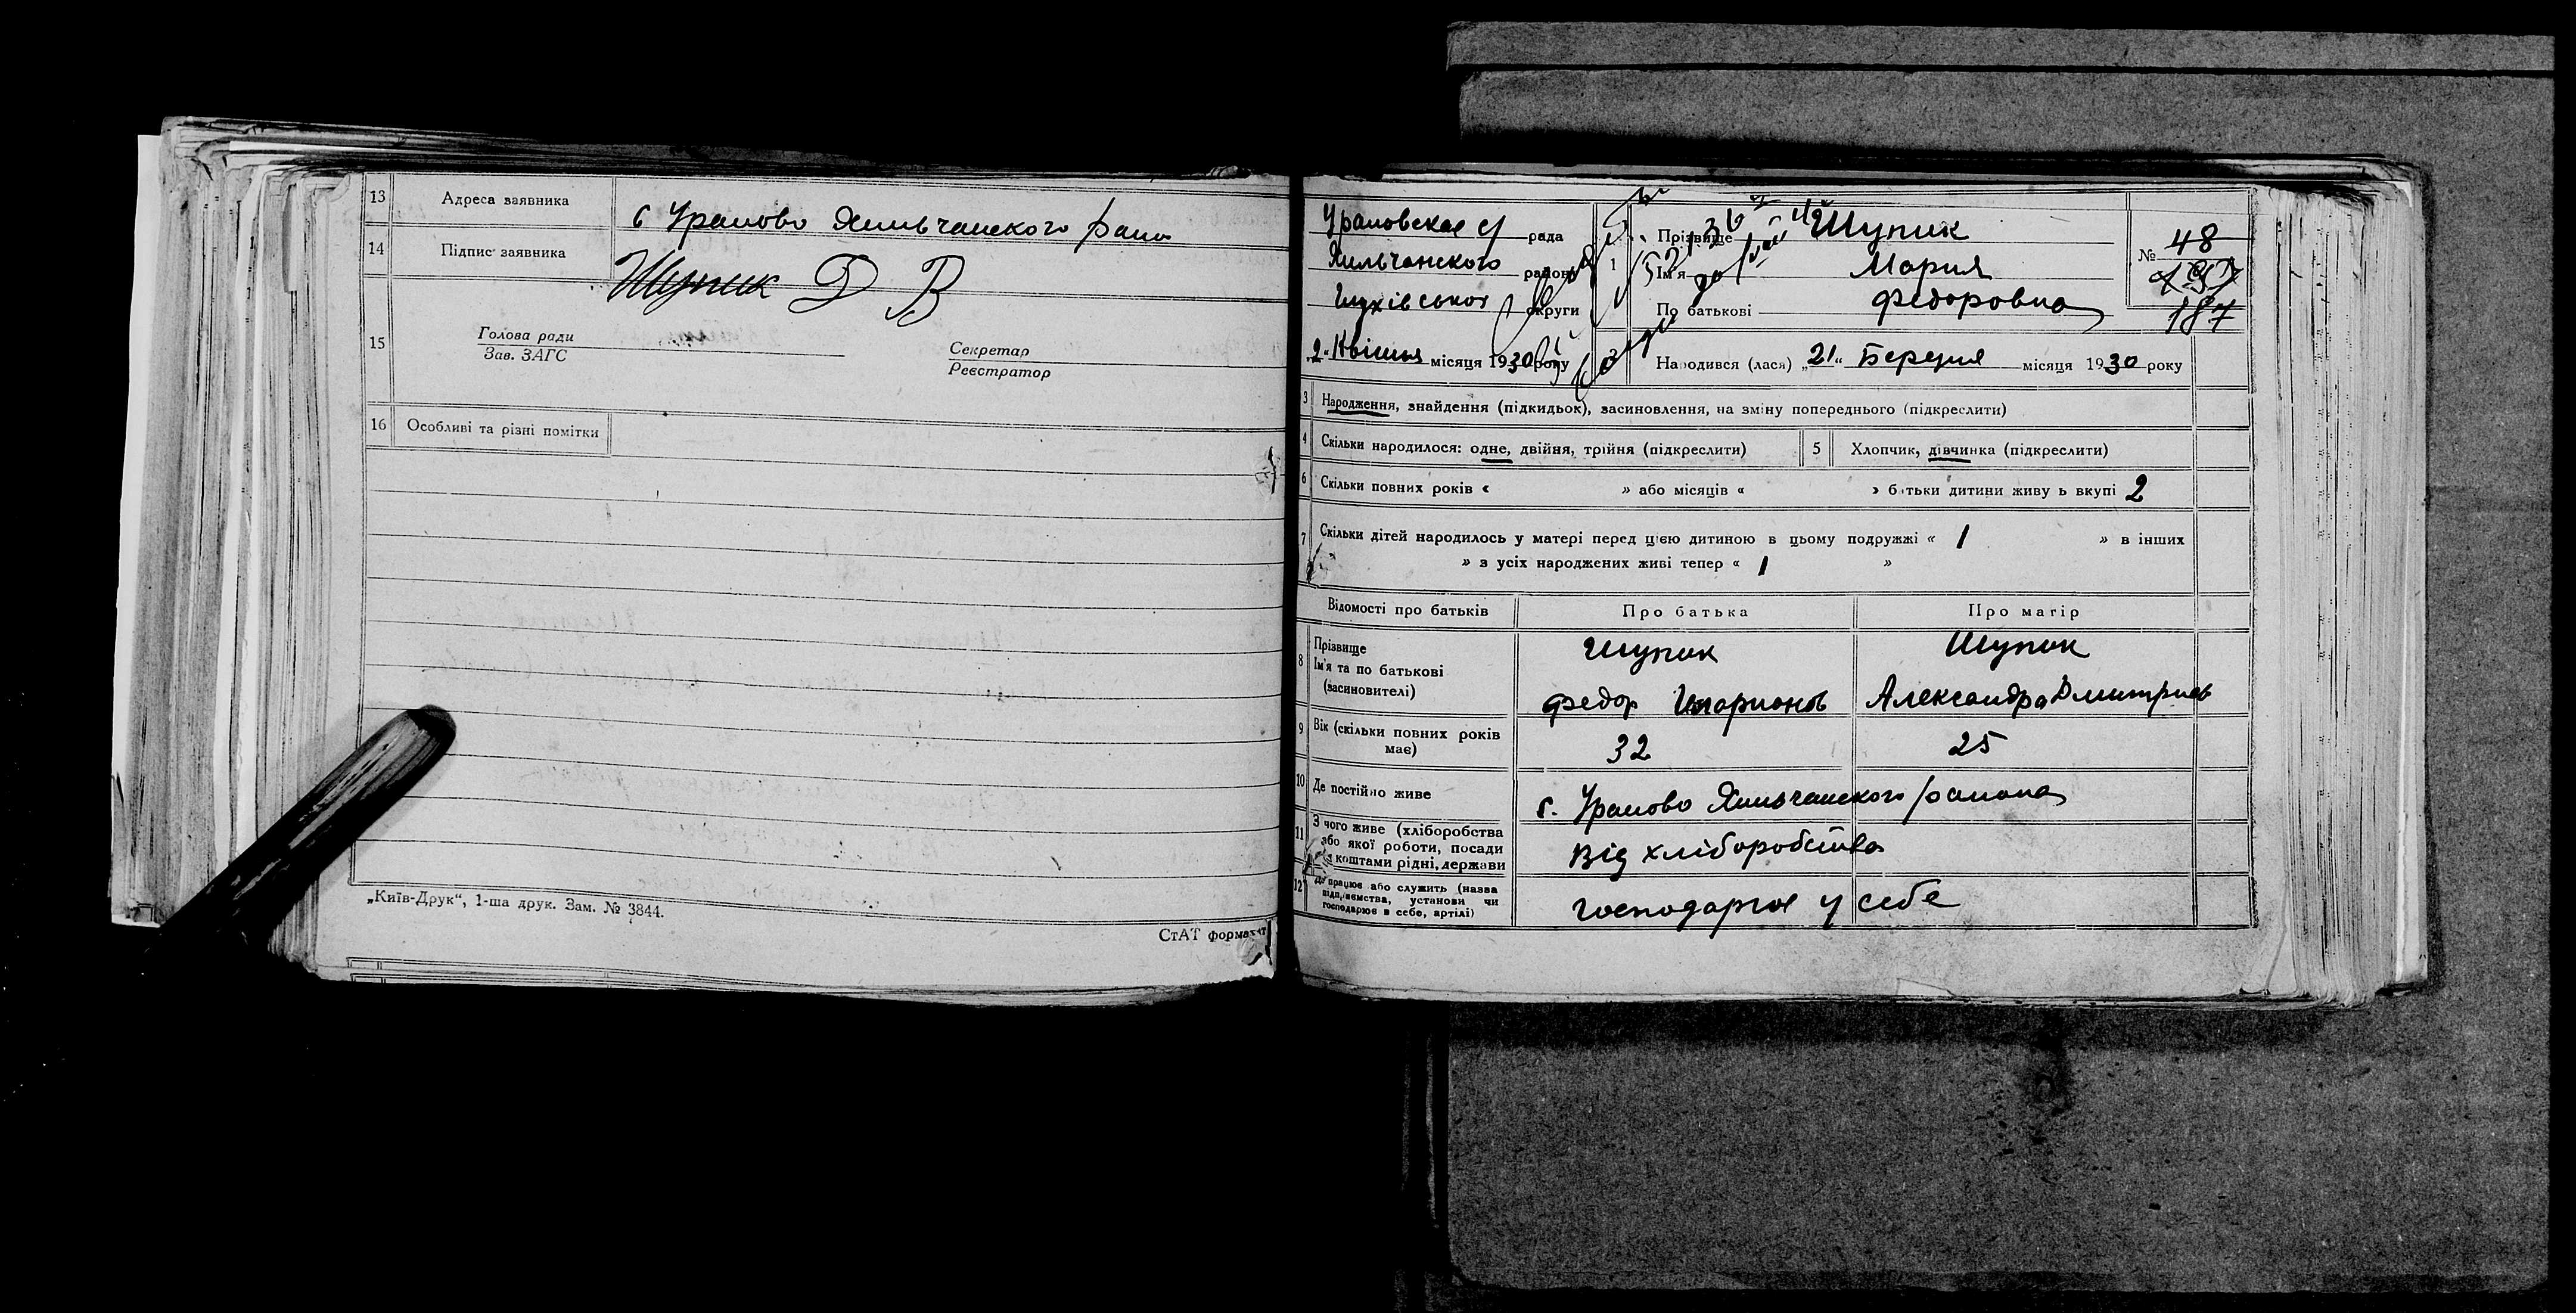 13 Адреса заявника с Уралово Хильчанского рано
14 Підпис заявника Шупик Д В
15 Голова ради
Зав. ЗАГС
Секретар
Реєстратор
16 Особливі та різні помітки
„Київ-Друк“, 1-ша друк. Зам. № 3844.
СтАТ форма
Ураловская с/ рада
Хильчанского району
Глухівської округи
„2“ Квітня місяця 1930 року
1 Прізвище Шупик
Ім'я Мария
По батькові Федоровна
№ 48
187
Народився (лася) „21“ Березня місяця 1930 року
3 Народження, знайдення (підкидьок), засиновлення, на зміну попереднього (підкреслити)
4 Скільки народилося: одне, двійня, трійня (підкреслити) 5 Хлопчик, дівчинка (підкреслити)
6 Скільки повних років « » або місяців « » батьки дитини живуть вкупі 2
7 Скільки дітей народилось у матері перед цією дитиною в цьому подружжі « 1 » в інших
» з усіх народжених живі тепер « 1 »
Відомості про батьків Про батька Про матір
8 Прізвище Шупик Шупик
Ім'я та по батькові
(засиновителі) Федор Иларионов Александра Дмитриев
9 Вік (скільки повних років
має) 32 25
10 Де постійно живе с. Уралово Хильчанского района
11 З чого живе (хліборобства
або якої роботи, посади
з коштами рідні, держави Від хліборобства
12 Де працює або служить (назва
підприємства, установи чи
господарює в себе, артілі) господарює у себе